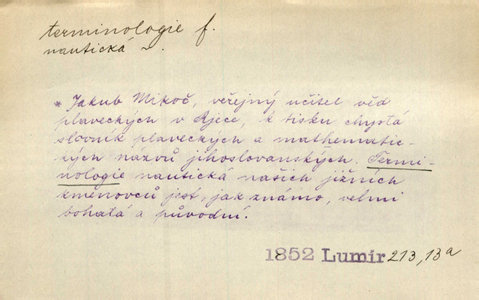 terminologie f.
nautická
* Jakub Mikoč, veřejný učitel věd
plaveckých v Rjece, k tisku chystá
slovník plaveckých a mathematic-
kých názvů jihoslovanských. Termi-
nologie nautická našich jižních
kmenovců jest, jak známo, velmi
bohatá a původní.
1852 Lumír 213,13a